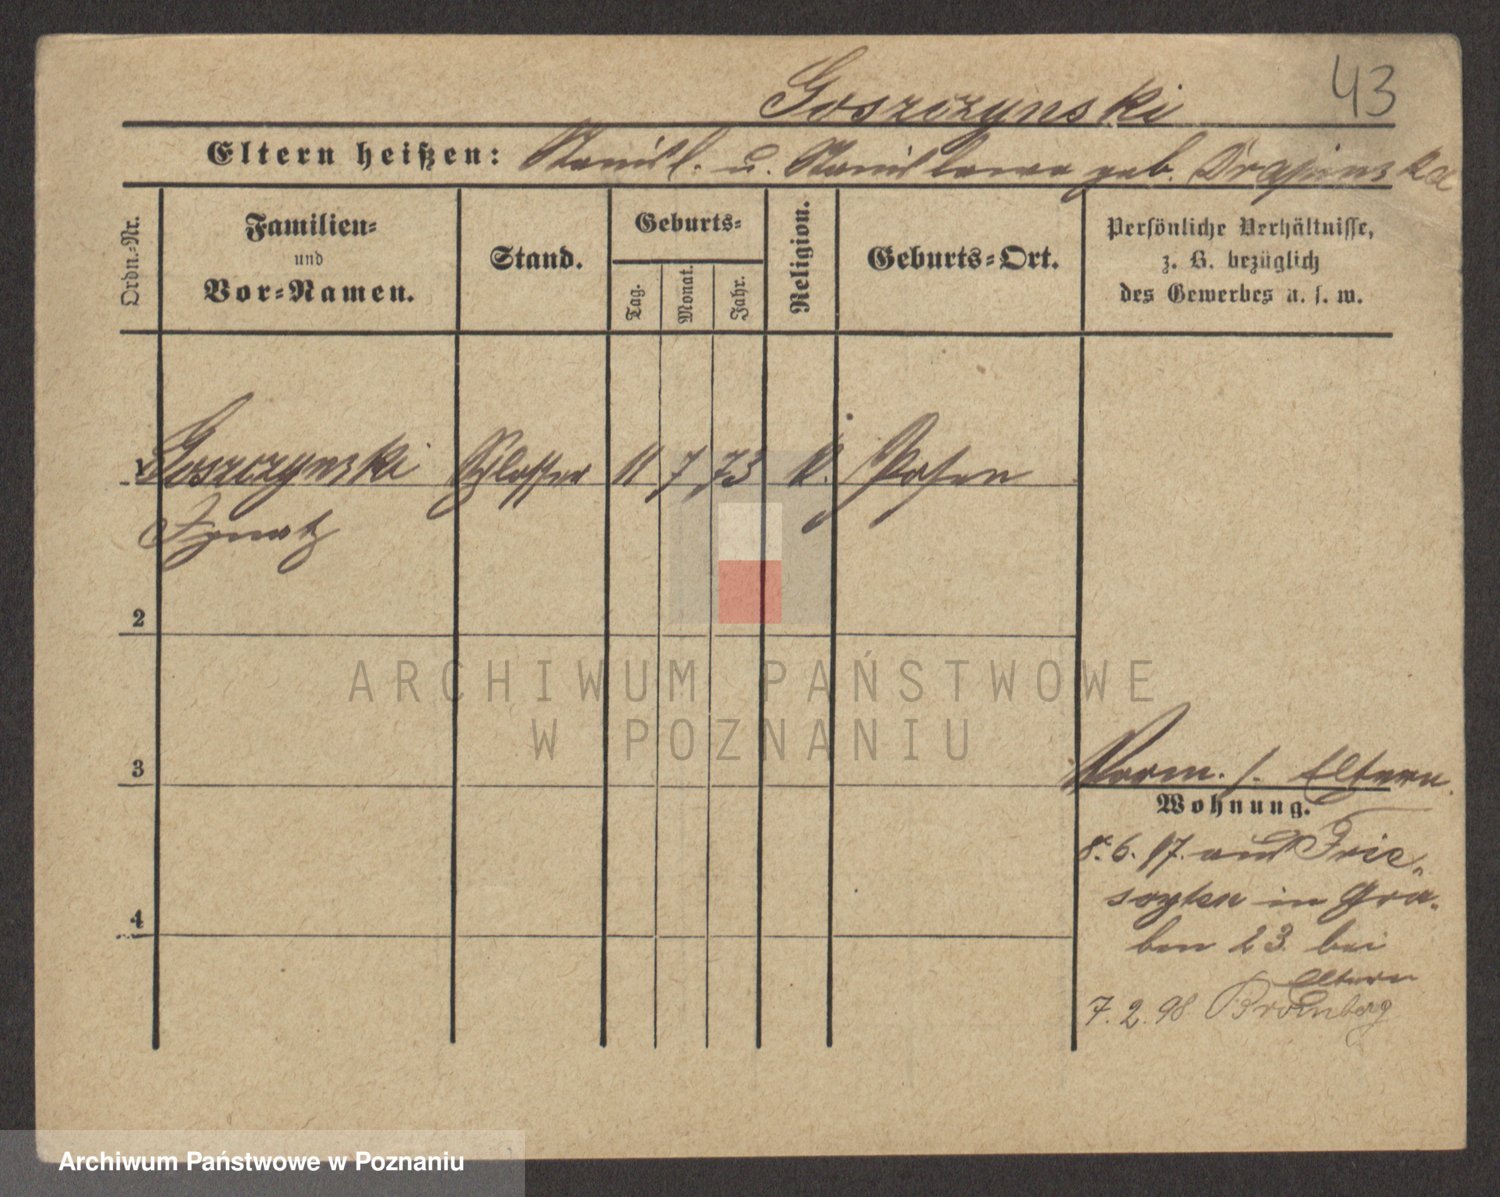 43
Goszczynski
Eltern heißen: Stanisl. u. Stanislawa geb. Drapinska
Ordn.-Nr.
Familien-
und
Vor-Namen.
Stand.
Geburts-
Tag.
Monat.
Jahr.
Religion.
Geburts-Ort.
Persönliche Verhältnisse,
z. B. bezüglich
des Gewerbes u. s. w.
1 Goszczynski Schlosser 11 7 73 k. Posen
Ignatz
2
3
4
ARCHIWUM PAŃSTWOWE
W POZNANIU
Verm. s. Eltern.
Wohnung.
8.6.97. aus Frie-
soyten in Gra-
ben 23. bei
Eltern
7.2.98 Bromberg
Archiwum Państwowe w Poznaniu